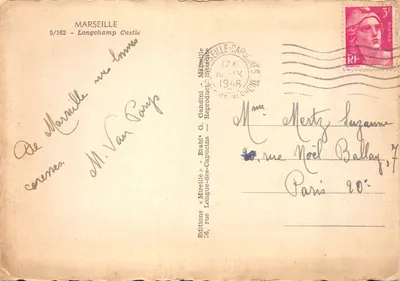 MARSEILLE
5/162 - Longchamp Castle
De Marseille
caresses.
M. Van Parys
Editions « Mireille » - Etabts G. Gandini - Marseille
26, rue Longue-des-Capucins — Reproduct. interdite
MARSEILLE-CAPUCINES
1948
3F
RF
Mme Mertz Suzanne
20, rue Noël Ballay, 7
Paris 20e